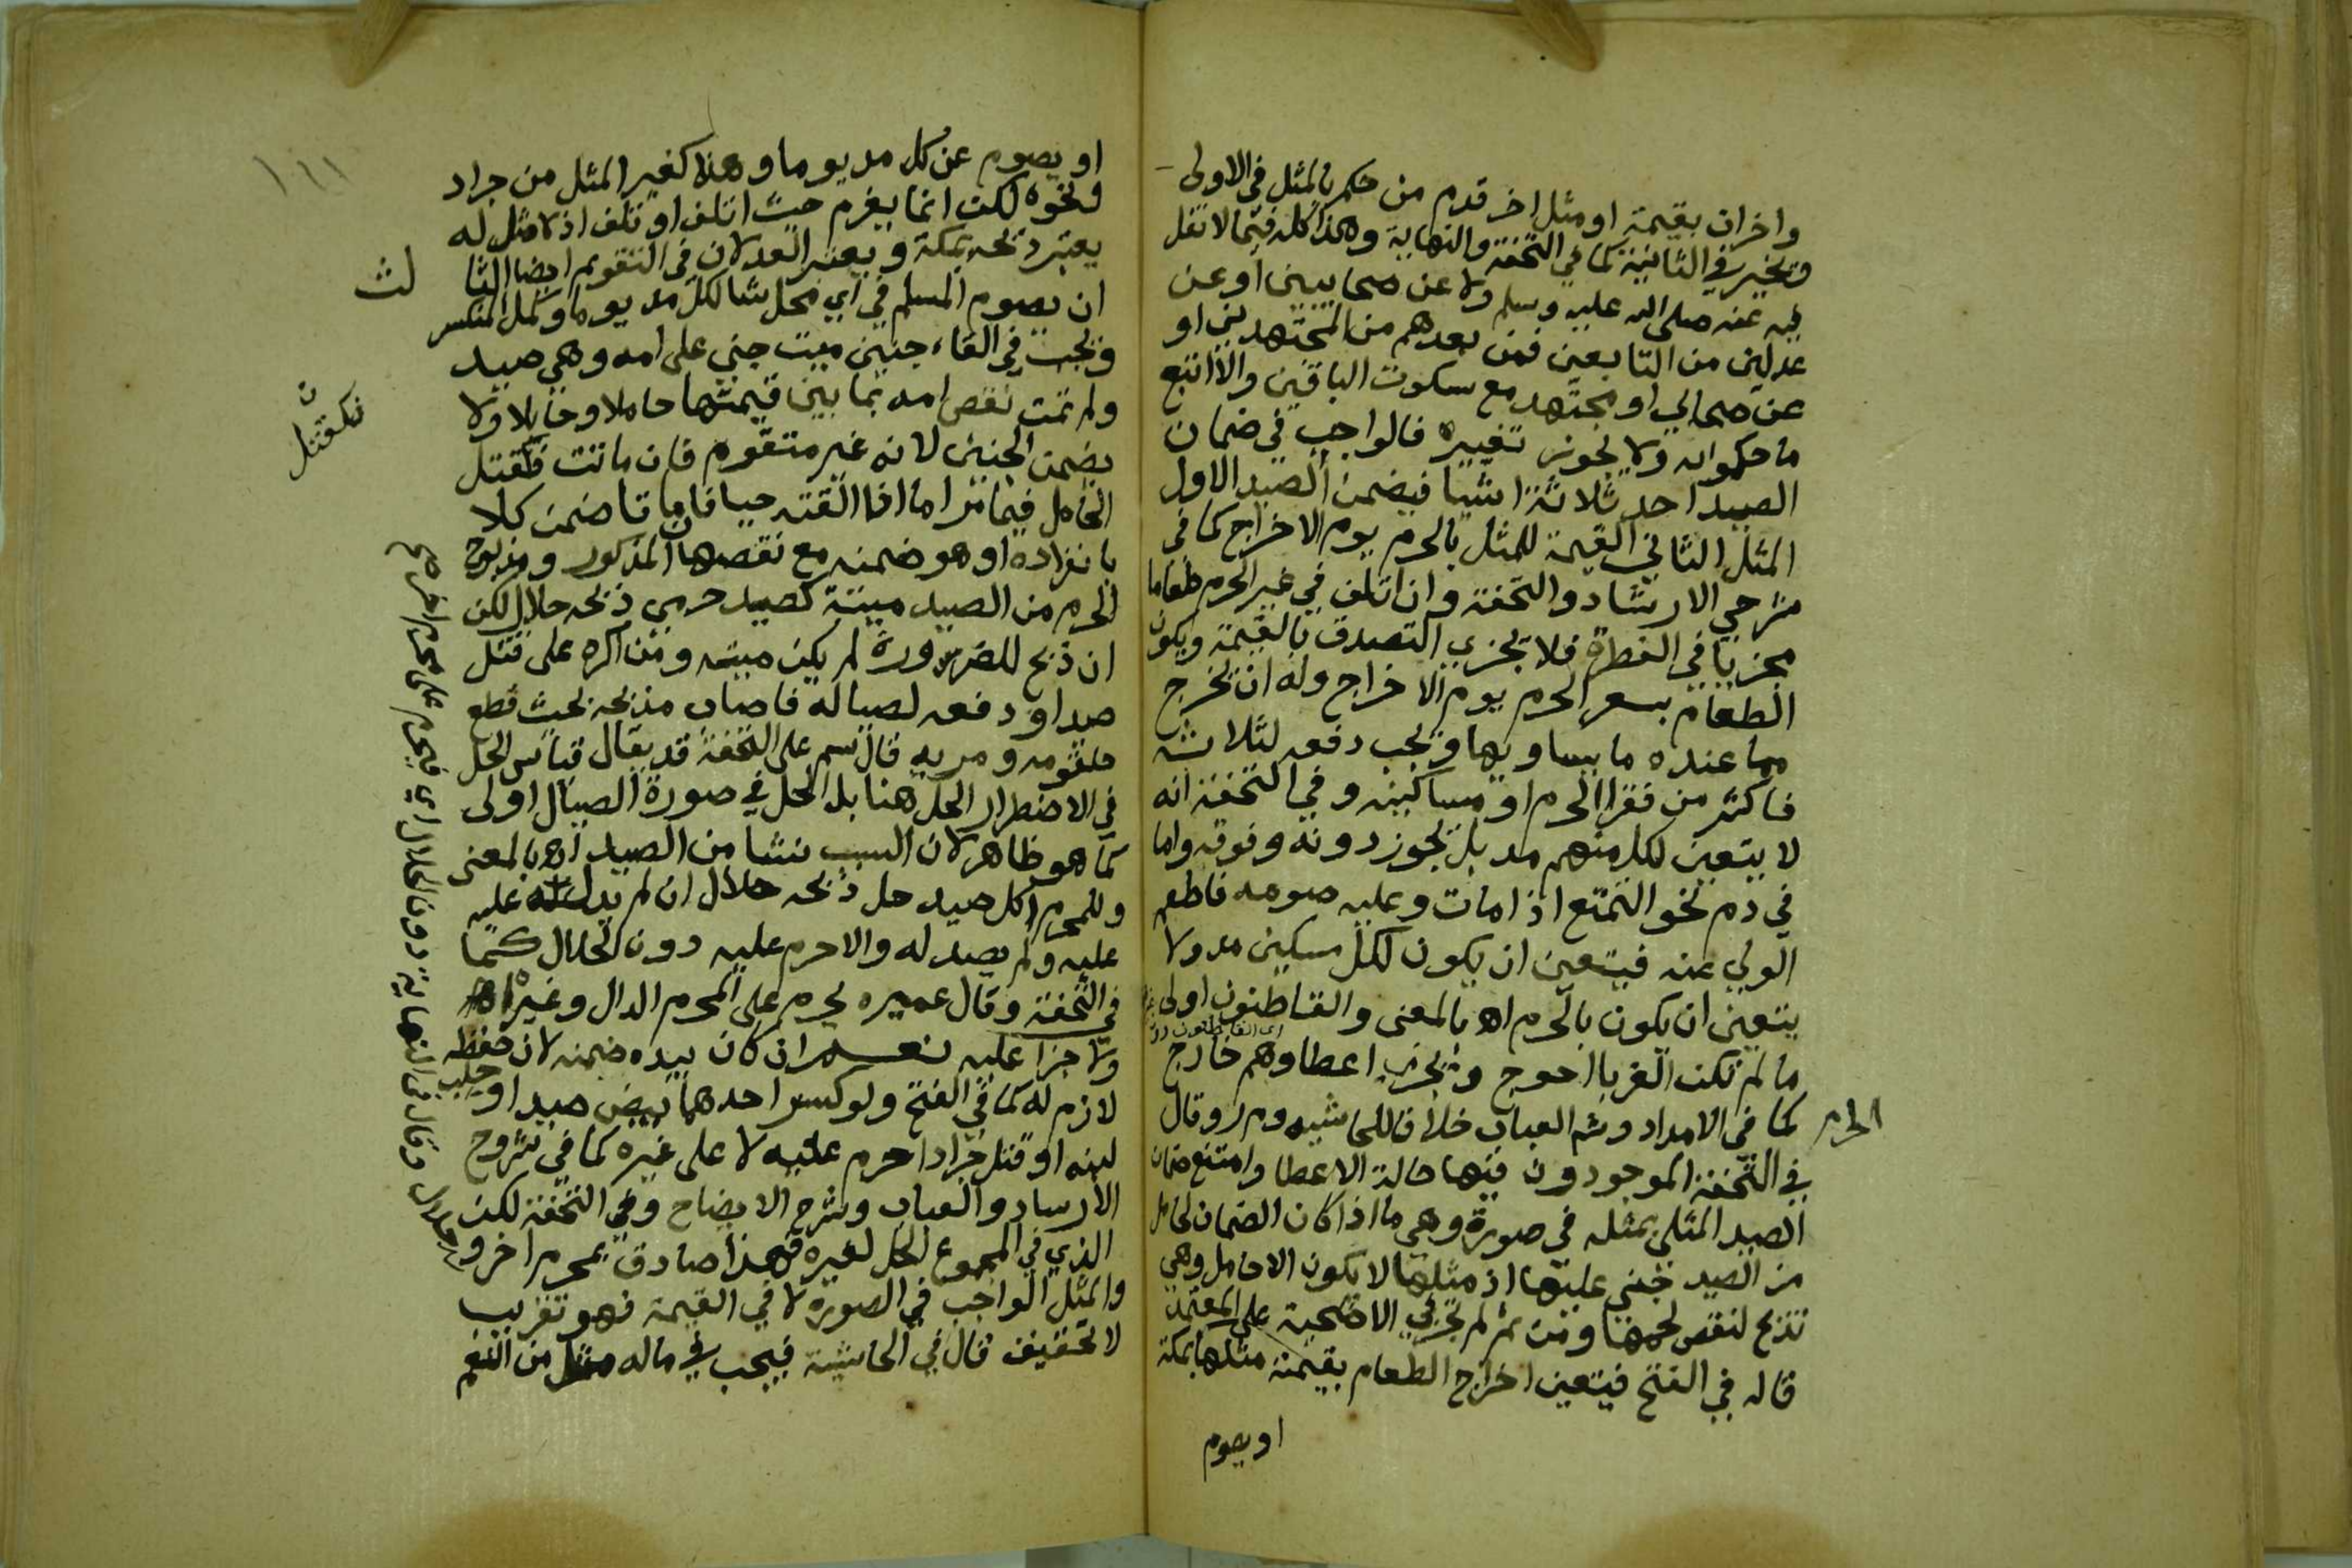 واخران بقيمة او مثل اخر قدم من حكم بالمثل في الاولى
وتخير في الثانية كما في التحفة والنهاية وهذا كله فيما لا نقل
فيه عنه صلى الله عليه وسلم ولا عن صحابيين او عن
عدلين من التابعين فمن بعدهم من المجتهدين او
عن صحابي او مجتهد مع سكوت الباقين والا اتبع
ما حكموا به ولا يجوز تغييره فالواجب في ضمان
الصيد احد ثلاثة اشيا فيضمن الصيد الاول
المثل الثاني القيمة للمثل بالحرم يوم الاخراج كما في
شرحي الارشاد والتحفة وان اتلف في غير الحرم طعاما
مجزيا في الفطرة فلا يجزي التصدق بالقيمة ويكون
الطعام بسعر الحرم يوم الاخراج وله ان يخرج
مما عنده ما يساويها ويجب دفعه لثلاثة
فاكثر من فقرا الحرم او مساكينه وفي التحفة انه
لا يتعين لكل منهم مد بل يجوز دونه وفوقه واما
في دم نحو التمتع اذا مات وعليه صومه فاطعم
الولي عنه فيتعين ان يكون لكل مسكين مد ولا
يتعين ان يكون بالحرم اه بالمعنى والقاطنون اولى
اي القاطنون
ما لم تكن الغربا احوج ويجزي اعطاوهم خارج
الحرم
كما في الامداد وشم العباب خلافا للحاشيه وم ر وقال
في التحفة الموجودون فيها حالة الاعطا وامتنع ضمان
الصيد المثلي بمثله في صورة وهي ما اذا كان الضمان لحامل
من الصيد جني عليها اذ مثلها لا يكون الا حامل وهي
تذبح لنقص لحمها ومن ثم لم تجز في الاضحية على المعتمد
قاله في الفتح فيتعين اخراج الطعام بقيمة مثلها بمكة
او يصوم
١٦١
او يصوم عن كل مد يوما وهذا كغير المثل من جراد
ونحوه لكن انما يغرم حيث اتلف او تلف اذ لا مثل له
يعتبر ذبحه بمكة ويعتبر العدلان في التقويم ايضا الثا
لث
ان يصوم المسلم في اي محل شا لكل مد يوما وكمل المنكسر
ويجب في القاء جنين ميت جني على امه وهي صيد
ولم تمت نقص امه بما بين قيمتها حاملا وحايلا ولا
يضمن الجنين لانه غير متقوم فان ماتت فكقتل
ن
فكقتل
الحامل فيما مر اما اذا القته حيا فان ماتا ضمن كلا
بانفراده او هو ضمنه مع نقصها المذكور ومذبوح
المحرم من الصيد ميتة كصيد حرمي ذبحه حلال لكن
ان ذبح للضرورة لم يكن ميته ومن اكره على قتل
صيد او دفعه لصياله فاصاب مذبحه بحيث قطع
حلقومه ومريه قال سم على التحفة قد يقال قياس الحل
في الاضطرار الحل هنا بل الحل في صورة الصيال اولى
كما هو ظاهر لان السبب نشا من الصيد اه بالمعنى
وللمحرم اكل صيد حل ذبحه حلال ان لم يدل عليه
عليه ولم يصد له والا حرم عليه دون الحلال كما
في التحفة وقال عميره يحرم على المحرم الدال وغيره اه
ولا جزا عليه نعم ان كان بيده ضمنه لان حفظه
لازم له كما في الفتح ولو كسر احدهما بيض صيد او حلب
لبنه او قتل جرادا حرم عليه لا على غيره كما في شروح
الارشاد والعباب وشرح الايضاح وفي التحفة لكن
الذي في المجموع الحل لغيره فهذا صادق بمحرم اخر و
والمثل الواجب في الصورة لا في القيمة فهو تقريب
لا تحقيق قال في الحاشية فيجب في ماله مثل من النعم